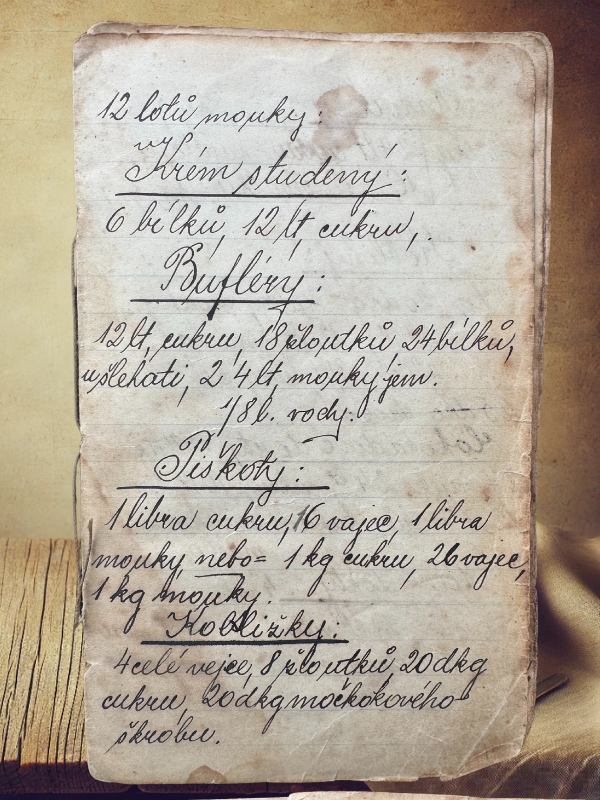 12 lotů mouky:
Krém studený:
6 bílků, 12 lt, cukru,.
Bufléry:
12 lt, cukru, 18 žloutků, 24 bílků,
ušlehati, 24 lt, mouky jem.
1/8 l. vody.
Piškoty:
1 libra cukru, 16 vajec, 1 libra
mouky nebo= 1 kg cukru, 26 vajec,
1 kg mouky.
Kobližky:
4 celé vejce, 8 žloutků, 20 dkg
cukru, 20 dkg močkokového
škrobu.